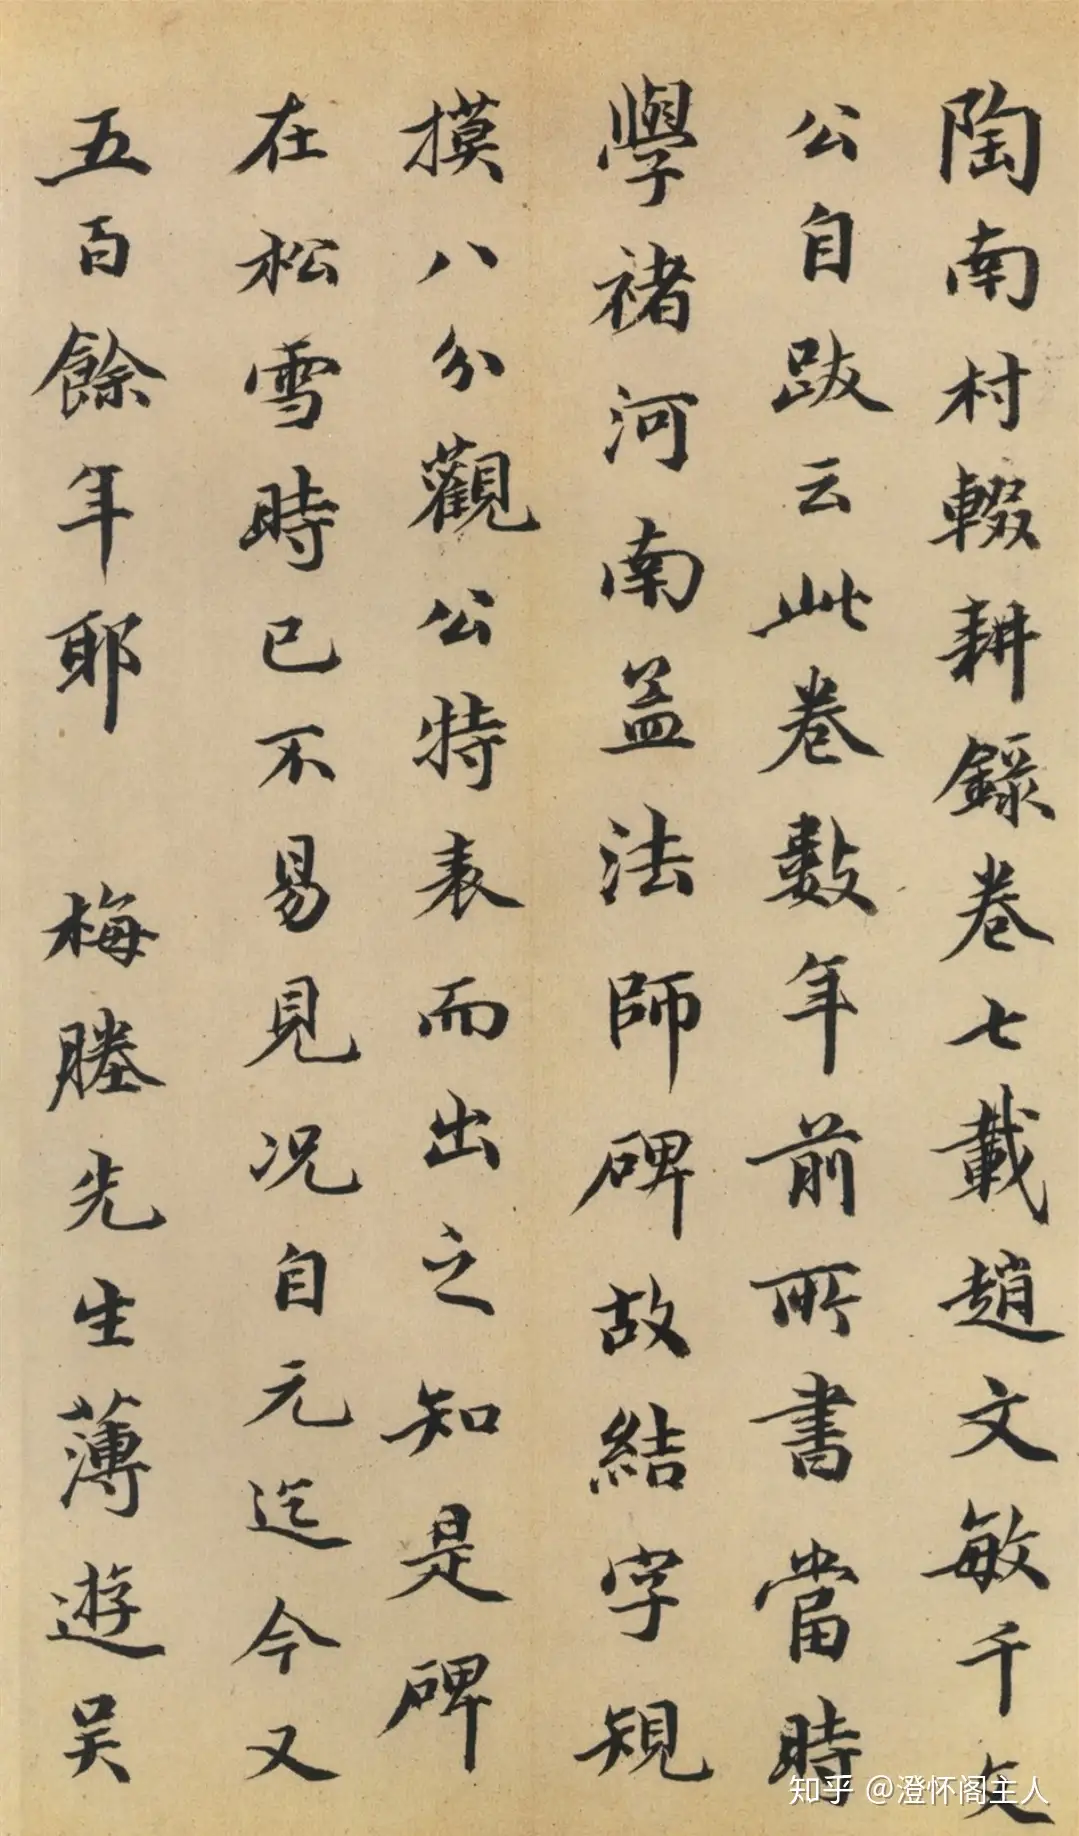 陶南村輟耕錄卷七載趙文敏千文
公自跋云此卷數年前所書當時
學褚河南孟法師碑故結字規
摸八分觀公特表而出之知是碑
在松雪時已不易見况自元迄今又
五百餘年耶 梅塍先生薄遊吴
知乎 @澄怀阁主人